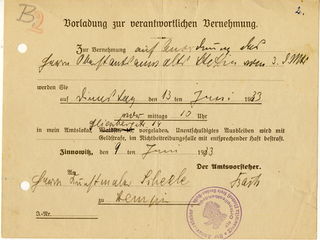 B.2
2.
Vorladung zur verantwortlichen Vernehmung.
Zur Vernehmung auf Anordnung des
Herrn Oberstaatsanwalts vom 3. d. Mts.
werden Sie
auf Dienstag den 13 ten Juni 1933
vor mittags 10 Uhr
in mein Amtslokal, vorgeladen. Unentschuldigtes Ausbleiben wird mit
Geldstrafe, im Nichtbeitreibungsfalle mit entsprechender Haft bestraft.
Zinnowitz, den 9 ten Juni 1933
Der Amtsvorsteher.
An
Herrn Kunstmaler
zu Zempin
J.-Nr.